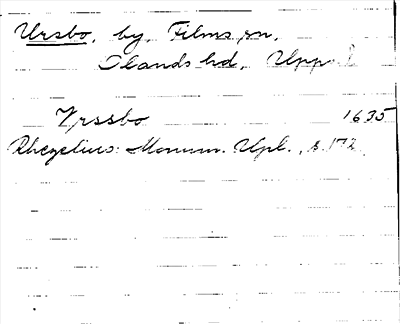 Ursbo, by, Films sn,
Olands hd, Uppl
Vrssbo 1635
Rhezelius: Monum. Upl., s. 172